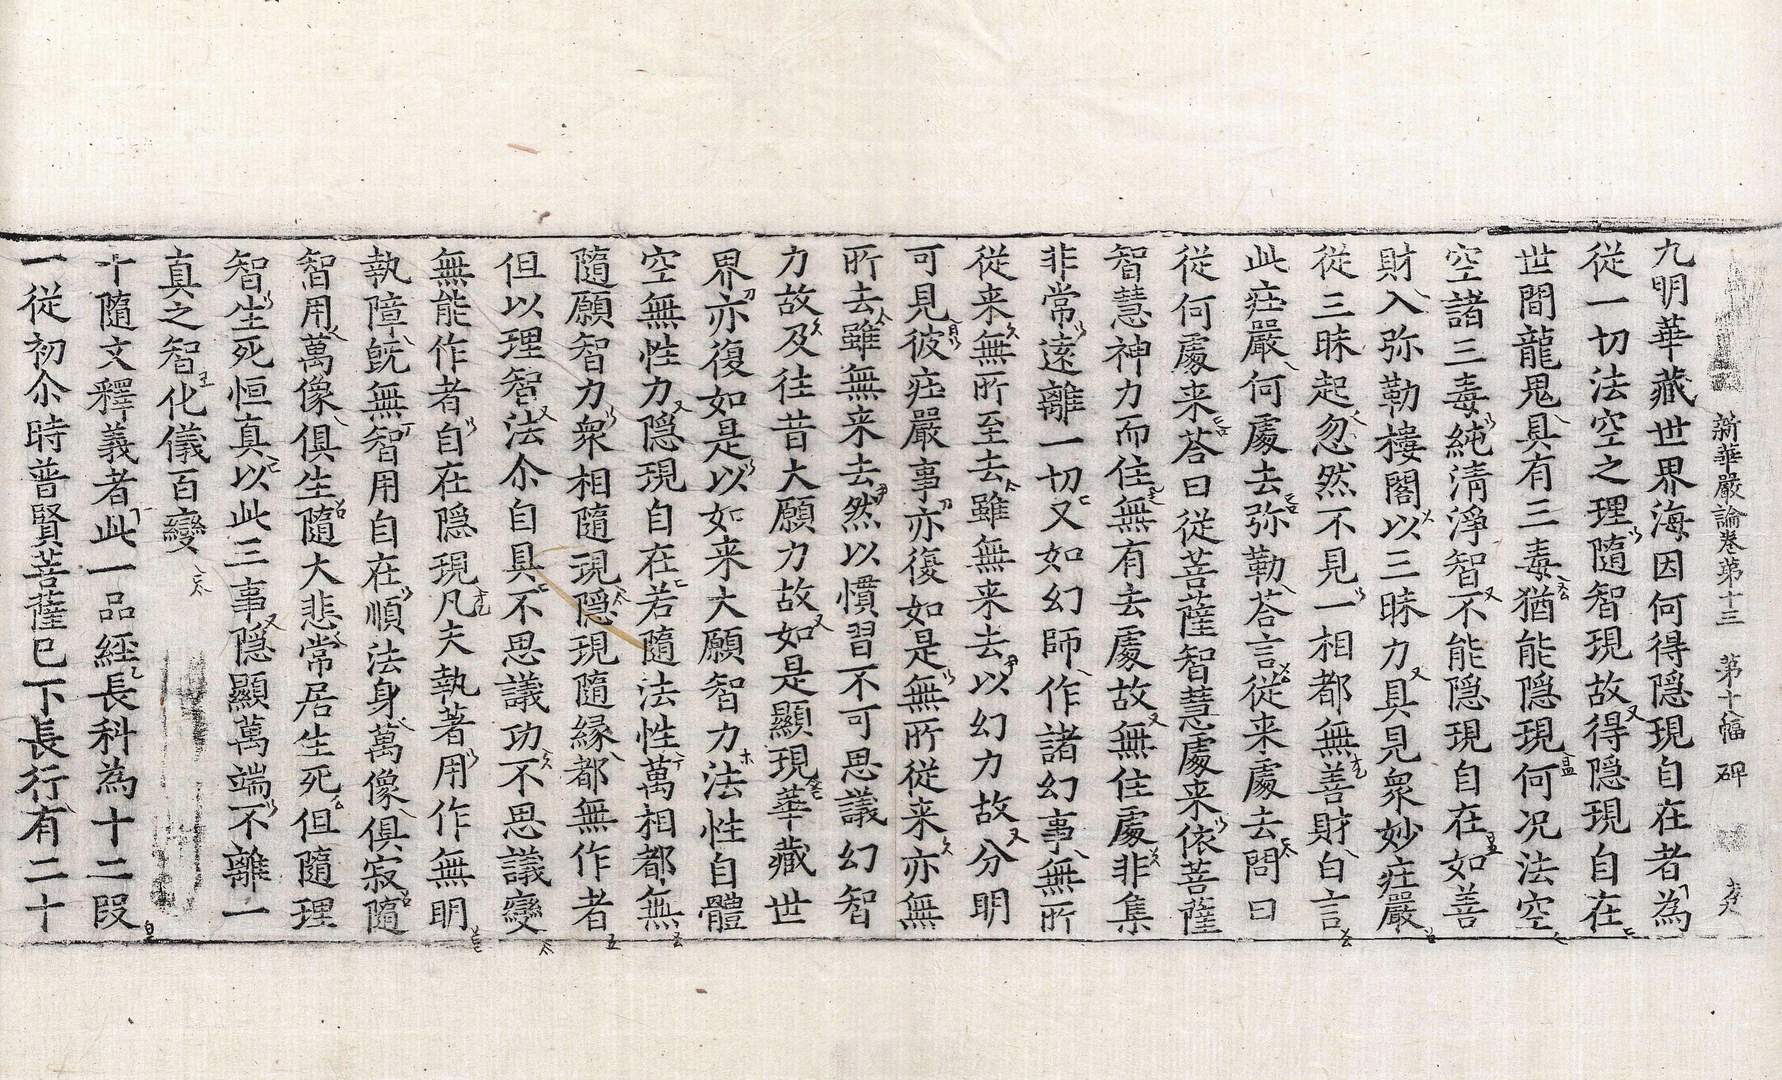 新華嚴論卷第十三 第十八幅 碑
九明華藏世界海因何得隱現自在者為
從一切法空之理隨智現故得隱現自在
世間龍鬼具有三毒猶能隱現何况法空
空諸三毒純清淨智不能隱現自在如善
財入弥勒樓閣以三昧力具見衆妙庄嚴
從三昧起忽然不見一相都無善財白言
此庄嚴何處去弥勒荅言從来處去問曰
從何處来荅曰從菩薩智慧處来依菩薩
智慧神力而住無有去處故無住處非集
非常遠離一切又如幻師作諸幻事無所
從来無所至去雖無来去以幻力故分明
可見彼庄嚴事亦復如是無所從来亦無
所去雖無来去然以慣習不可思議幻智
力故及往昔大願力故如是顯現華藏世
界亦復如是以如来大願智力法性自體
空無性力隱現自在若隨法性萬相都無
隨願智力衆相隨現隱現隨緣都無作者
但以理智法尒自具不思議功不思議變
無能作者自在隱現凡夫執著用作無明
執障旣無智用自在順法身萬像俱寂隨
智用萬像俱生隨大悲常居生死但隨理
智生死恒真以此三事隱顯萬端不離一
真之智化儀百變
十隨文釋義者此一品經長科為十二段
一從初尒時普賢菩薩已下長行有二十